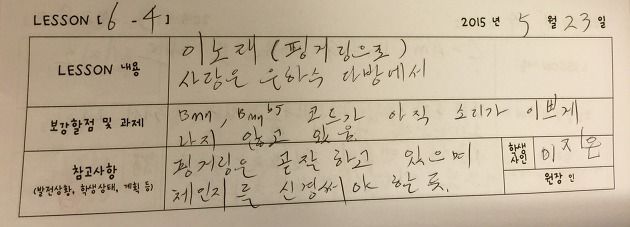 LESSON [6-4] 2015 년 5 월 23 일
LESSON 내용
이노래 (핑거링으로)
사랑은 은하수 다방에서
보강할점 및 과제
Bm7, Bm7b5 코드가 아직 소리가 이쁘게
나지 않고 있음
참고사항
(발전상황, 학생상태, 계획 등)
핑거링은 곧잘 하고 있으며
체인지를 신경써야 할 듯.
학생
사인
이지은
원장 인